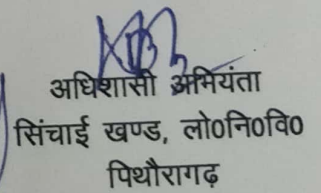 अधिशासी अभियंता
सिंचाई खण्ड, लो०नि०वि०
पिथौरागढ़